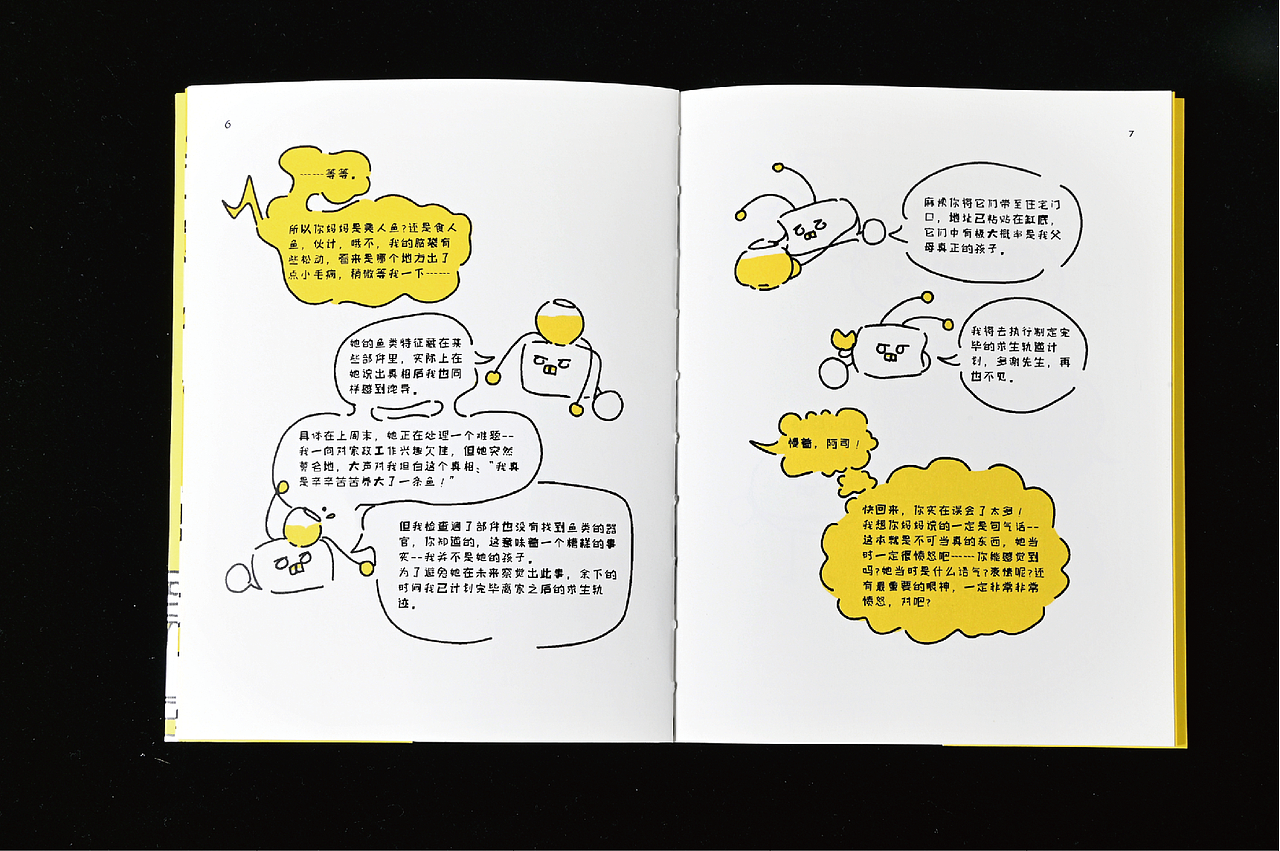 6
······等等。
所以你妈妈是美人鱼?还是食人
鱼，伙计，哦不，我的脑袋有
些松动，看来是哪个地方出了
点小毛病，稍微等我一下······
她的鱼类特征藏在某
些部件里，实际上在
她说出真相后我也同
样感到诧异。
具体在上周末，她正在处理一个难题--
我一向对家政工作兴趣欠佳，但她突然
大声对我坦白这个真相：“我真
是辛辛苦苦养大了一条鱼！”
但我检查遍了部件也没有找到鱼类的器
官，你知道的，这意味着一个糟糕的事
实--我并不是她的孩子。
为了避免她在未来察觉出此事，余下的
时间我已计划完毕离家之后的求生轨
迹。
7
麻烦你将它们带至住宅门
口，地址已粘贴在缸底，
它们中有极大概率是我父
母真正的孩子。
我将去执行制定完
毕的求生轨道计
划，多谢先生，再
也不见。
慢着，阿司！
快回来，你实在误会了太多！
我想你妈妈说的一定是句气话--
这本就是不可当真的东西，她当
时一定很愤怒吧······你能感觉到
吗?她当时是什么语气?表情呢?还
有最重要的眼神，一定非常非常
愤怒，对吧?